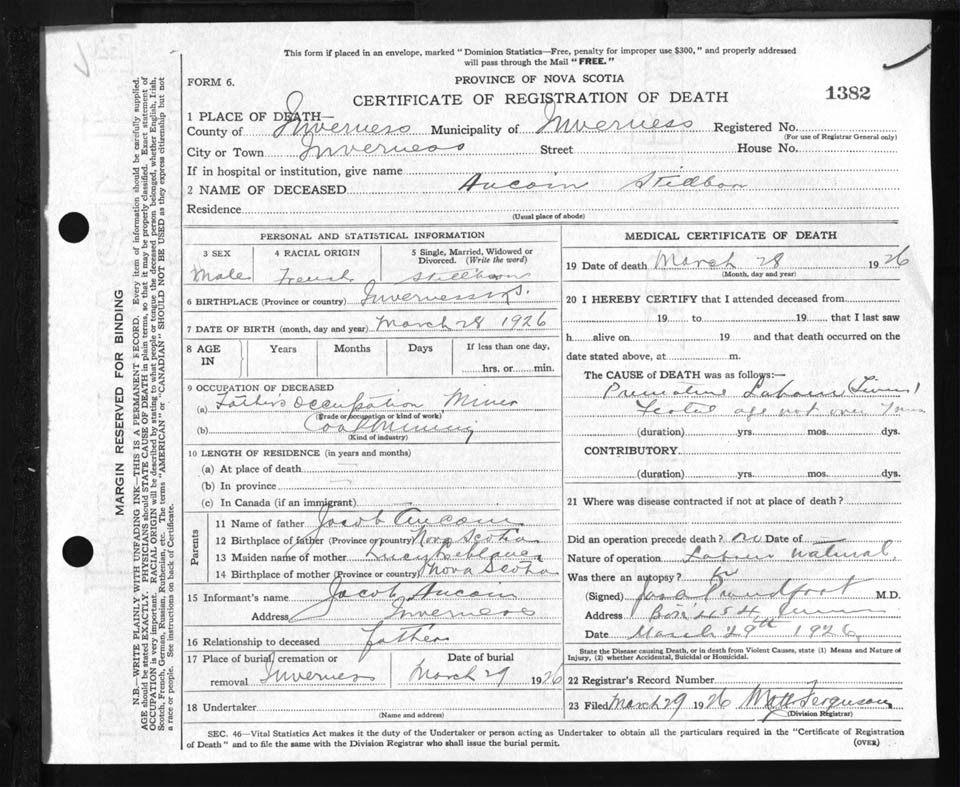 This form if placed in an envelope, marked "Dominion Statistics—Free, penalty for improper use $300," and properly addressed
will pass through the Mail "FREE."
FORM 6.
PROVINCE OF NOVA SCOTIA
CERTIFICATE OF REGISTRATION OF DEATH
1382
1 PLACE OF DEATH—
County of Inverness Municipality of Inverness Registered No.
(For use of Registrar General only)
City or Town Inverness Street House No.
If in hospital or institution, give name
2 NAME OF DECEASED Aucoin Stillborn
Residence
(Usual place of abode)
PERSONAL AND STATISTICAL INFORMATION
3 SEX 4 RACIAL ORIGIN 5 Single, Married, Widowed or
Divorced. (Write the word)
Male French Stillborn
6 BIRTHPLACE (Province or country) Inverness N.S.
7 DATE OF BIRTH (month, day and year) March 28 1926
8 AGE IN Years Months Days If less than one day,
hrs. or min.
9 OCCUPATION OF DECEASED
(a) Fathers occupation Miner
(Trade or occupation or kind of work)
(b) Coal Mining
(Kind of industry)
10 LENGTH OF RESIDENCE (in years and months)
(a) At place of death
(b) In province
(c) In Canada (if an immigrant)
Parents
11 Name of father Jacob Aucoin
12 Birthplace of father (Province or country) Nova Scotia
13 Maiden name of mother Lucy
14 Birthplace of mother (Province or country) Nova Scotia
15 Informant's name Jacob Aucoin
Address Inverness
16 Relationship to deceased father
17 Place of burial, cremation or Date of burial
removal Inverness March 29 1926
18 Undertaker
(Name and address)
MEDICAL CERTIFICATE OF DEATH
19 Date of death March 28 1926
(Month, day and year)
20 I HEREBY CERTIFY that I attended deceased from
19 to 19 that I last saw
h alive on 19 and that death occurred on the
date stated above, at m.
The CAUSE of DEATH was as follows:—
Premature Labour (Twins)
age not over
(duration) yrs. mos. dys.
CONTRIBUTORY
(duration) yrs. mos. dys.
21 Where was disease contracted if not at place of death?
Did an operation precede death? No Date of
Nature of operation Labour natural
Was there an autopsy?
(Signed) Proudfoot M.D.
Address Box 454
Date March 29th 1926
State the Disease causing Death, or in death from Violent Causes, state (1) Means and Nature of
Injury, (2) whether Accidental, Suicidal or Homicidal.
22 Registrar's Record Number 7
23 Filed March 29 1926 Ferguson
(Division Registrar)
SEC. 46—Vital Statistics Act makes it the duty of the Undertaker or person acting as Undertaker to obtain all the particulars required in the "Certificate of Registration
of Death" and to file the same with the Division Registrar who shall issue the burial permit. (OVER)
MARGIN RESERVED FOR BINDING
N.B.—WRITE PLAINLY WITH UNFADING INK—THIS IS A PERMANENT RECORD. Every item of information should be carefully supplied.
AGE should be stated EXACTLY. PHYSICIANS should STATE CAUSE OF DEATH in plain terms, so that it may be properly classified. Exact statement of
OCCUPATION is very important. RACIAL ORIGIN will be described by stating to what people or tongue the deceased person belonged, whether English, Irish,
Scotch, French, German, Russian, Ruthenian, etc. The terms "AMERICAN" or "CANADIAN" SHOULD NOT BE USED as they express citizenship but not
a race or people. See instructions on back of Certificate.